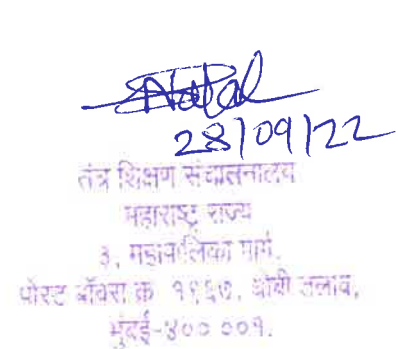 28/09/22
तंत्र शिक्षण संचालनालय
महाराष्ट्र राज्य
३, महापालिका मार्ग,
पोस्ट बॉक्स क्र १९६७, धोबी तलाव,
मुंबई-४०० ००१.